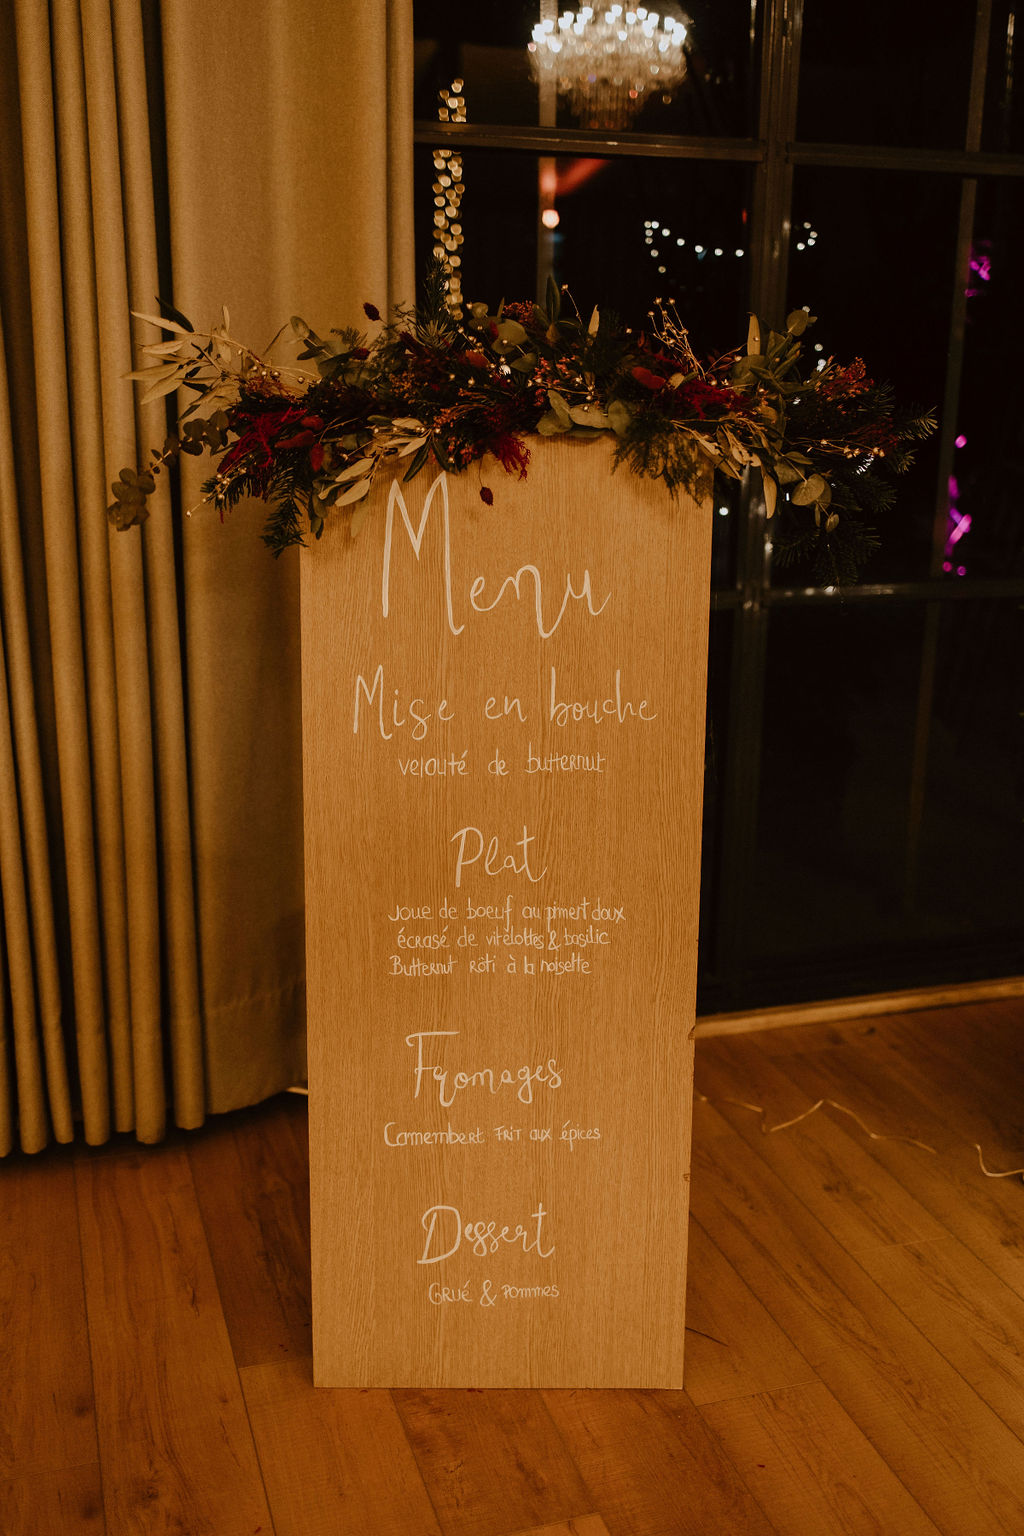 Menu
Mise en bouche
velouté de butternut
Plat
Joue de boeuf au piment doux
écrasé de vitelottes & basilic
Butternut rôti à la noisette
Fromages
Camembert FRIT aux épices
Dessert
GRUÉ & POMMES